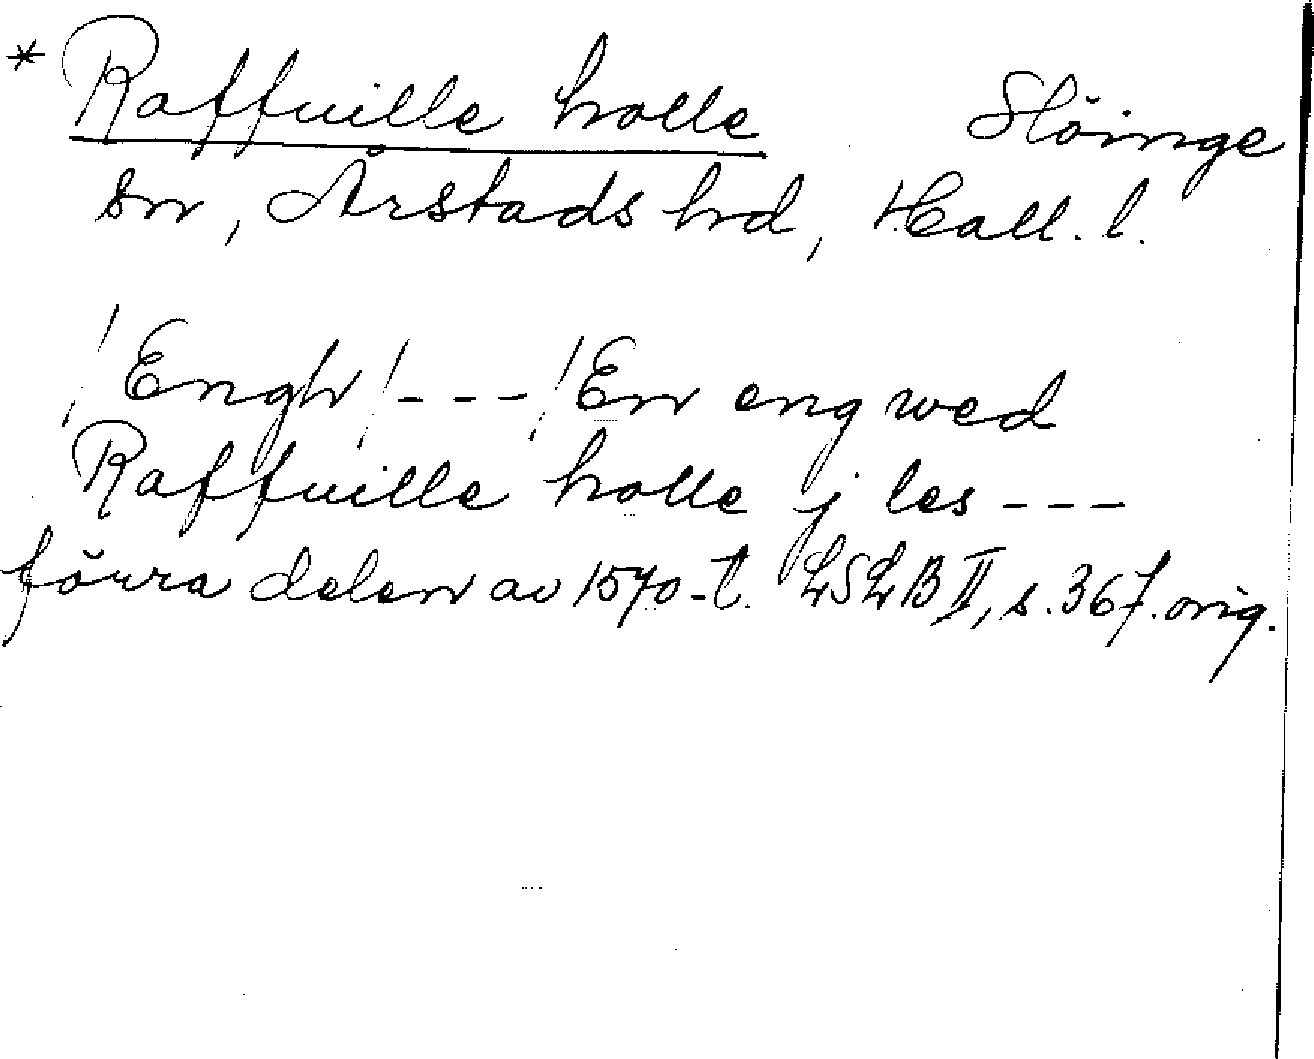 * Raffuille holle Slöinge
sn, Årstads hd, Hall. l.
/Engh/ --- /En eng wed
Raffuille holle j les ---
förra delen av 1570-t. LSLB II, s. 367. orig.